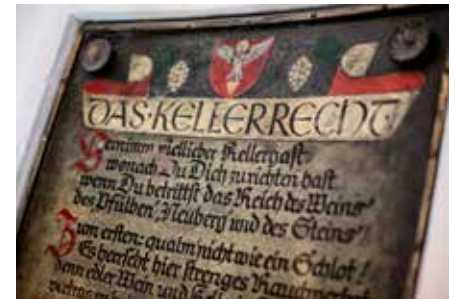 DAS·KELLERRECHT·
Vernimm viellieber Kellergast
wonach Du Dich zurichten hast
wenn Du betrittst das Reich des Weins
des Pfülben, Neuberg und des Steins!
Zum ersten: qualm nicht wie ein Schlot!
Es herrscht hier strenges Rauchverbot
denn edler Wein und